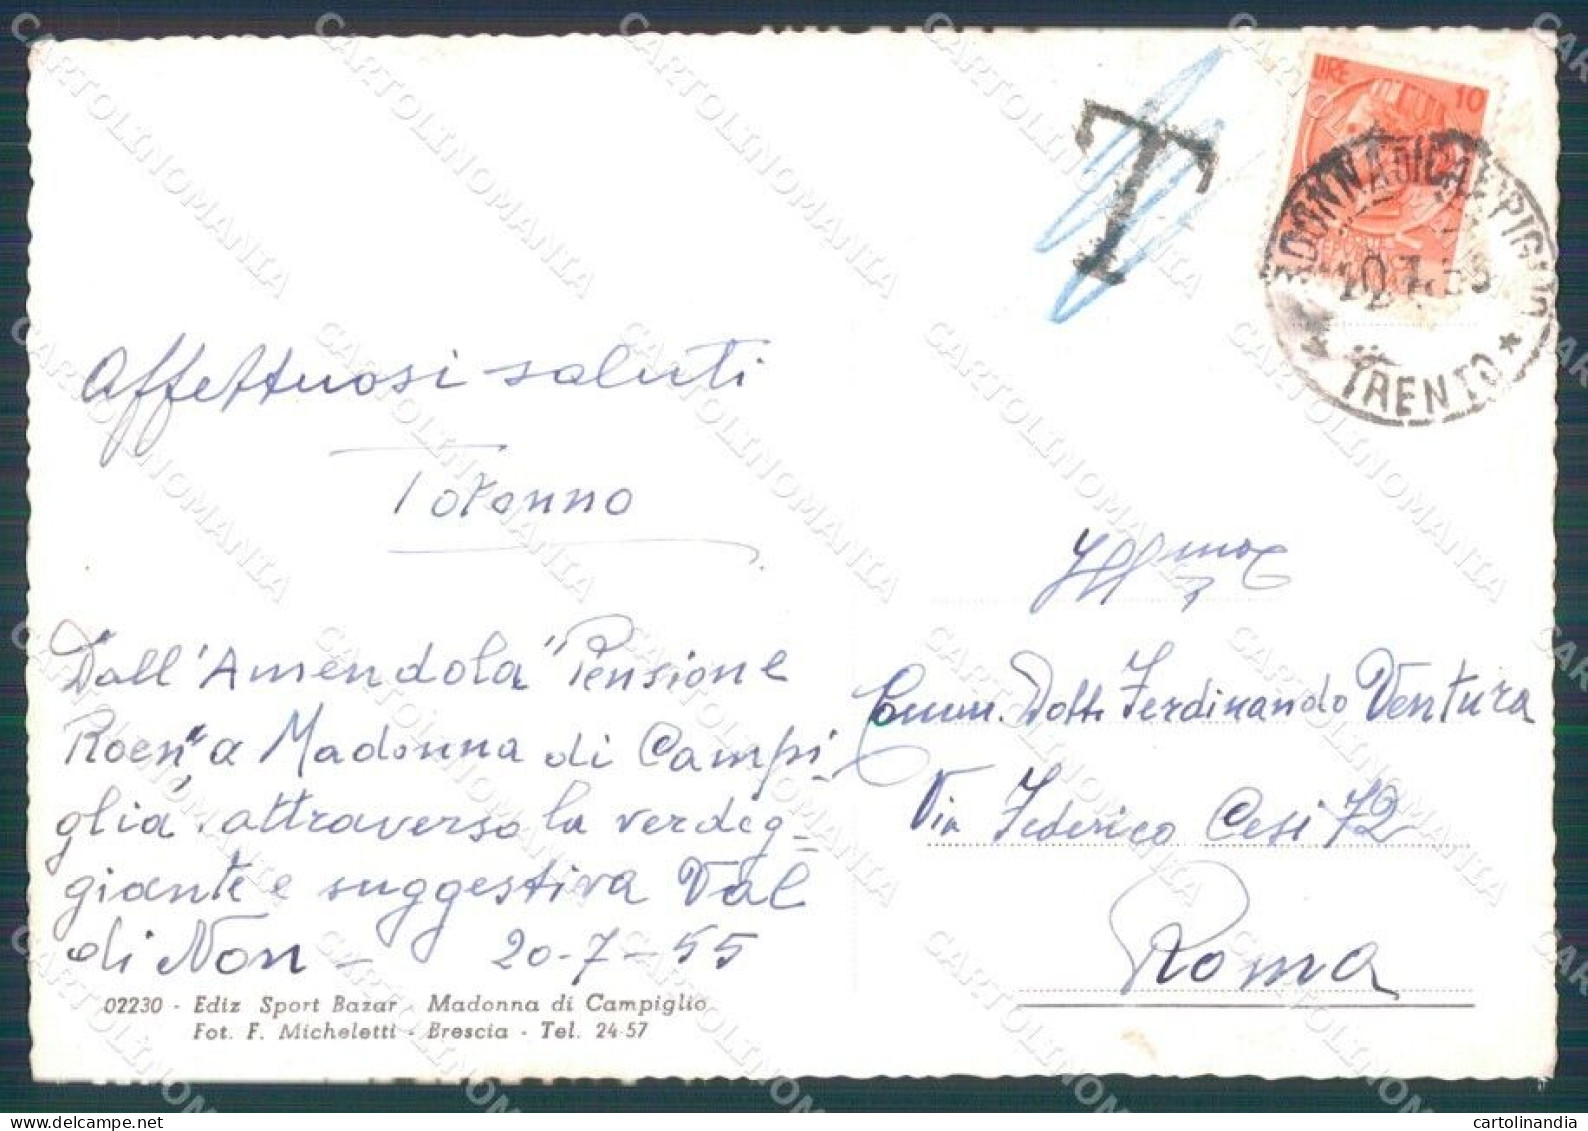 LIRE 10
T
MADONNA DI CAMPIGLIO
20.7.55
* TRENTO *
Affettuosi saluti
Totonno
Dall'Amendola "Pensione
Roen" a Madonna di Campi-
glia, attraverso la verdeg-
giante e suggestiva Val
di Non - 20-7-55
02230 - Ediz Sport Bazar - Madonna di Campiglio
Fot. F. Micheletti - Brescia - Tel. 24-57
Comm. Dott. Ferdinando Ventura
Via Federico Cesi 72
Roma
CARTOLINOMANIA
cartolinandia